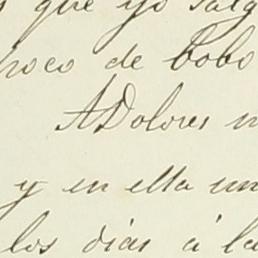 que yo salg
hoco de bobo
A Dolores n
y en ella un
los dias á la